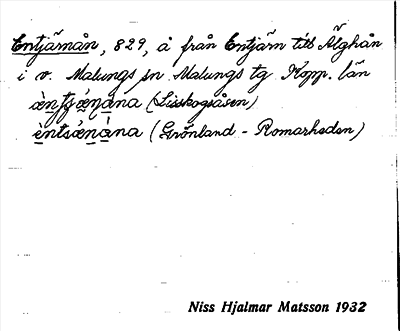 Entjärnån, 829, å från Entjärn till Älghån
i v. Malungs sn Malungs tg Kopp. län
(Lisskogsåsen)
èntsǽnàna (Grönland - Romarheden)
Niss Hjalmar Matsson 1932